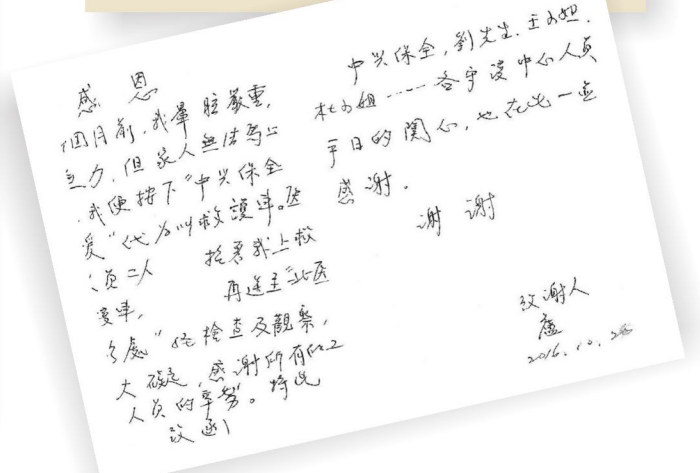 感恩
個月前,我暈眩嚴重,
乏力,但家人無法馬上
,我便按下"中兴保全
愛"代为叫救護車。医
員二人 抬著我上救
護車, 再送至"北医
處"經檢查及觀察,
大礙,感谢所有的工
人員的辛勞"。特此
致函
中兴保全,劉先生.王小姐.
杜小姐----各守護中心人員
平日的関心,也在此一並
感谢.
谢谢
致谢人
盧
2016.10.2